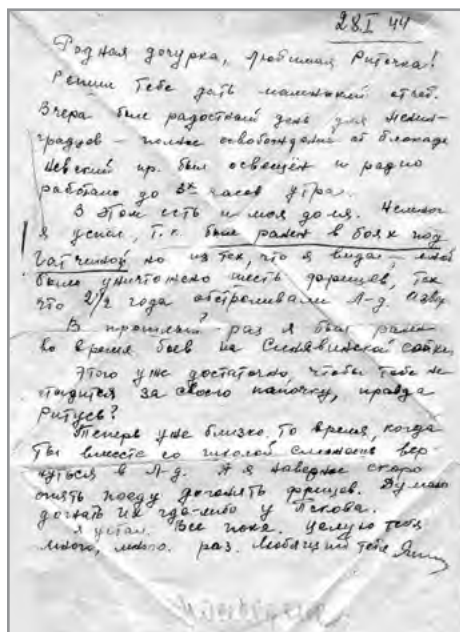 28.I 44
Родная дочурка, любимая Риточка!
Решил Тебе дать маленький отчет.
Вчера был радостный день для ленин-
градцев – полное освобождение от блокады
Невский пр. был освещён и радио
работало до 3х часов утра.
В этом есть и моя доля. Немног
я успел, т.к. был ранен в боях под
Гатчиной но из тех, что я видел – мной
было уничтожено шесть фрицев, тех
что 2 1/2 года обстреливали Л-д.
В прошлый раз я был ранен
во время боев на Синявинской
Этого уже достаточно, чтобы тебе не
стыдится за своего папочку, правда
Ритусь?
Теперь уже близко, то время, когда
Ты вместе со школой сможешь вер-
нуться в Л-д. А я наверное скоро
опять поеду догонять фрицев. Думаю
догнать их где-либо у Пскова.
Я устал. Все пока. Целую тебя
много, много раз. Любящий тебя